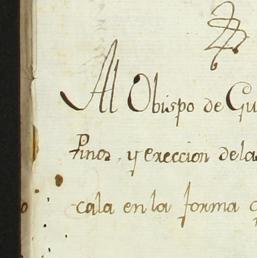 Al Obispo de Gu
Pinos, y ereccion de la
cala en la forma